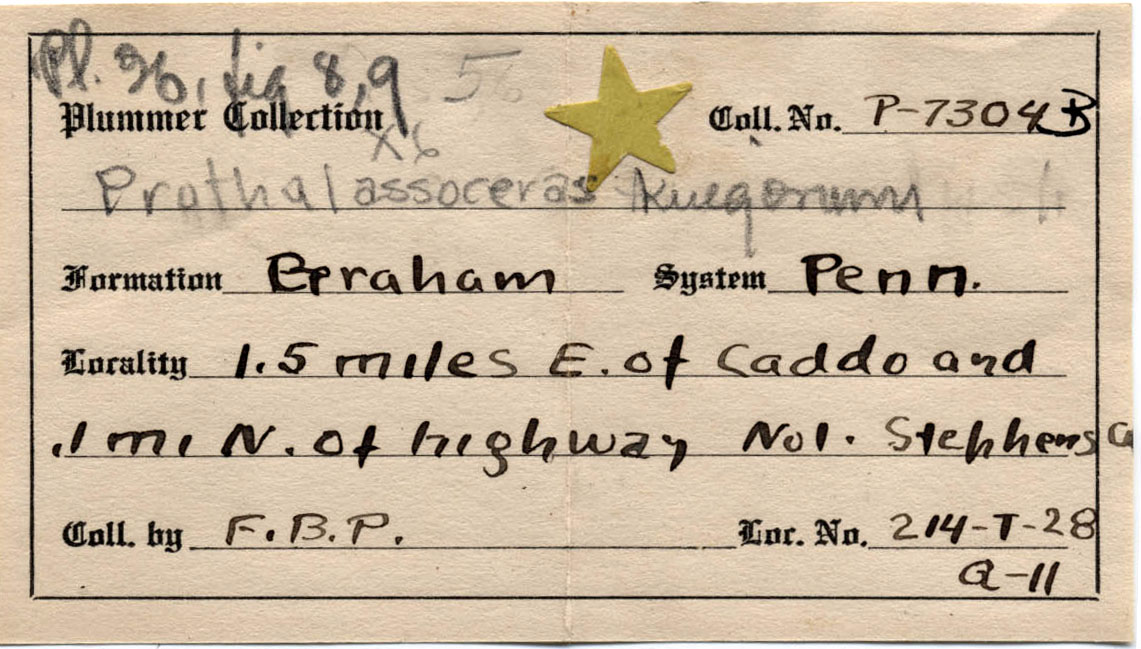 Pl. 36, fig 8,9 56
Plummer Collection Coll. No. P-7304B
x6
Prothalassoceras
Formation Graham System Penn.
Locality 1.5 miles E. of Caddo and
.1 mi N. of highway No 1. Stephens Co
Coll. by F.B.P. Loc. No. 214-T-28
Q-11